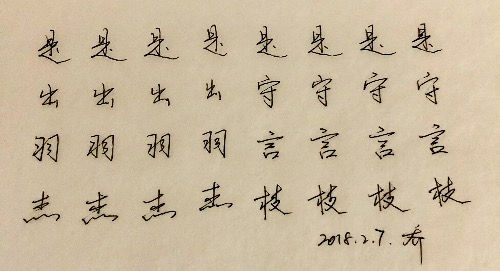 是是是是是是是是
出出出出守守守守
羽羽羽羽言言言言
杰杰杰杰枝枝枝枝
2018.2.7. 乔